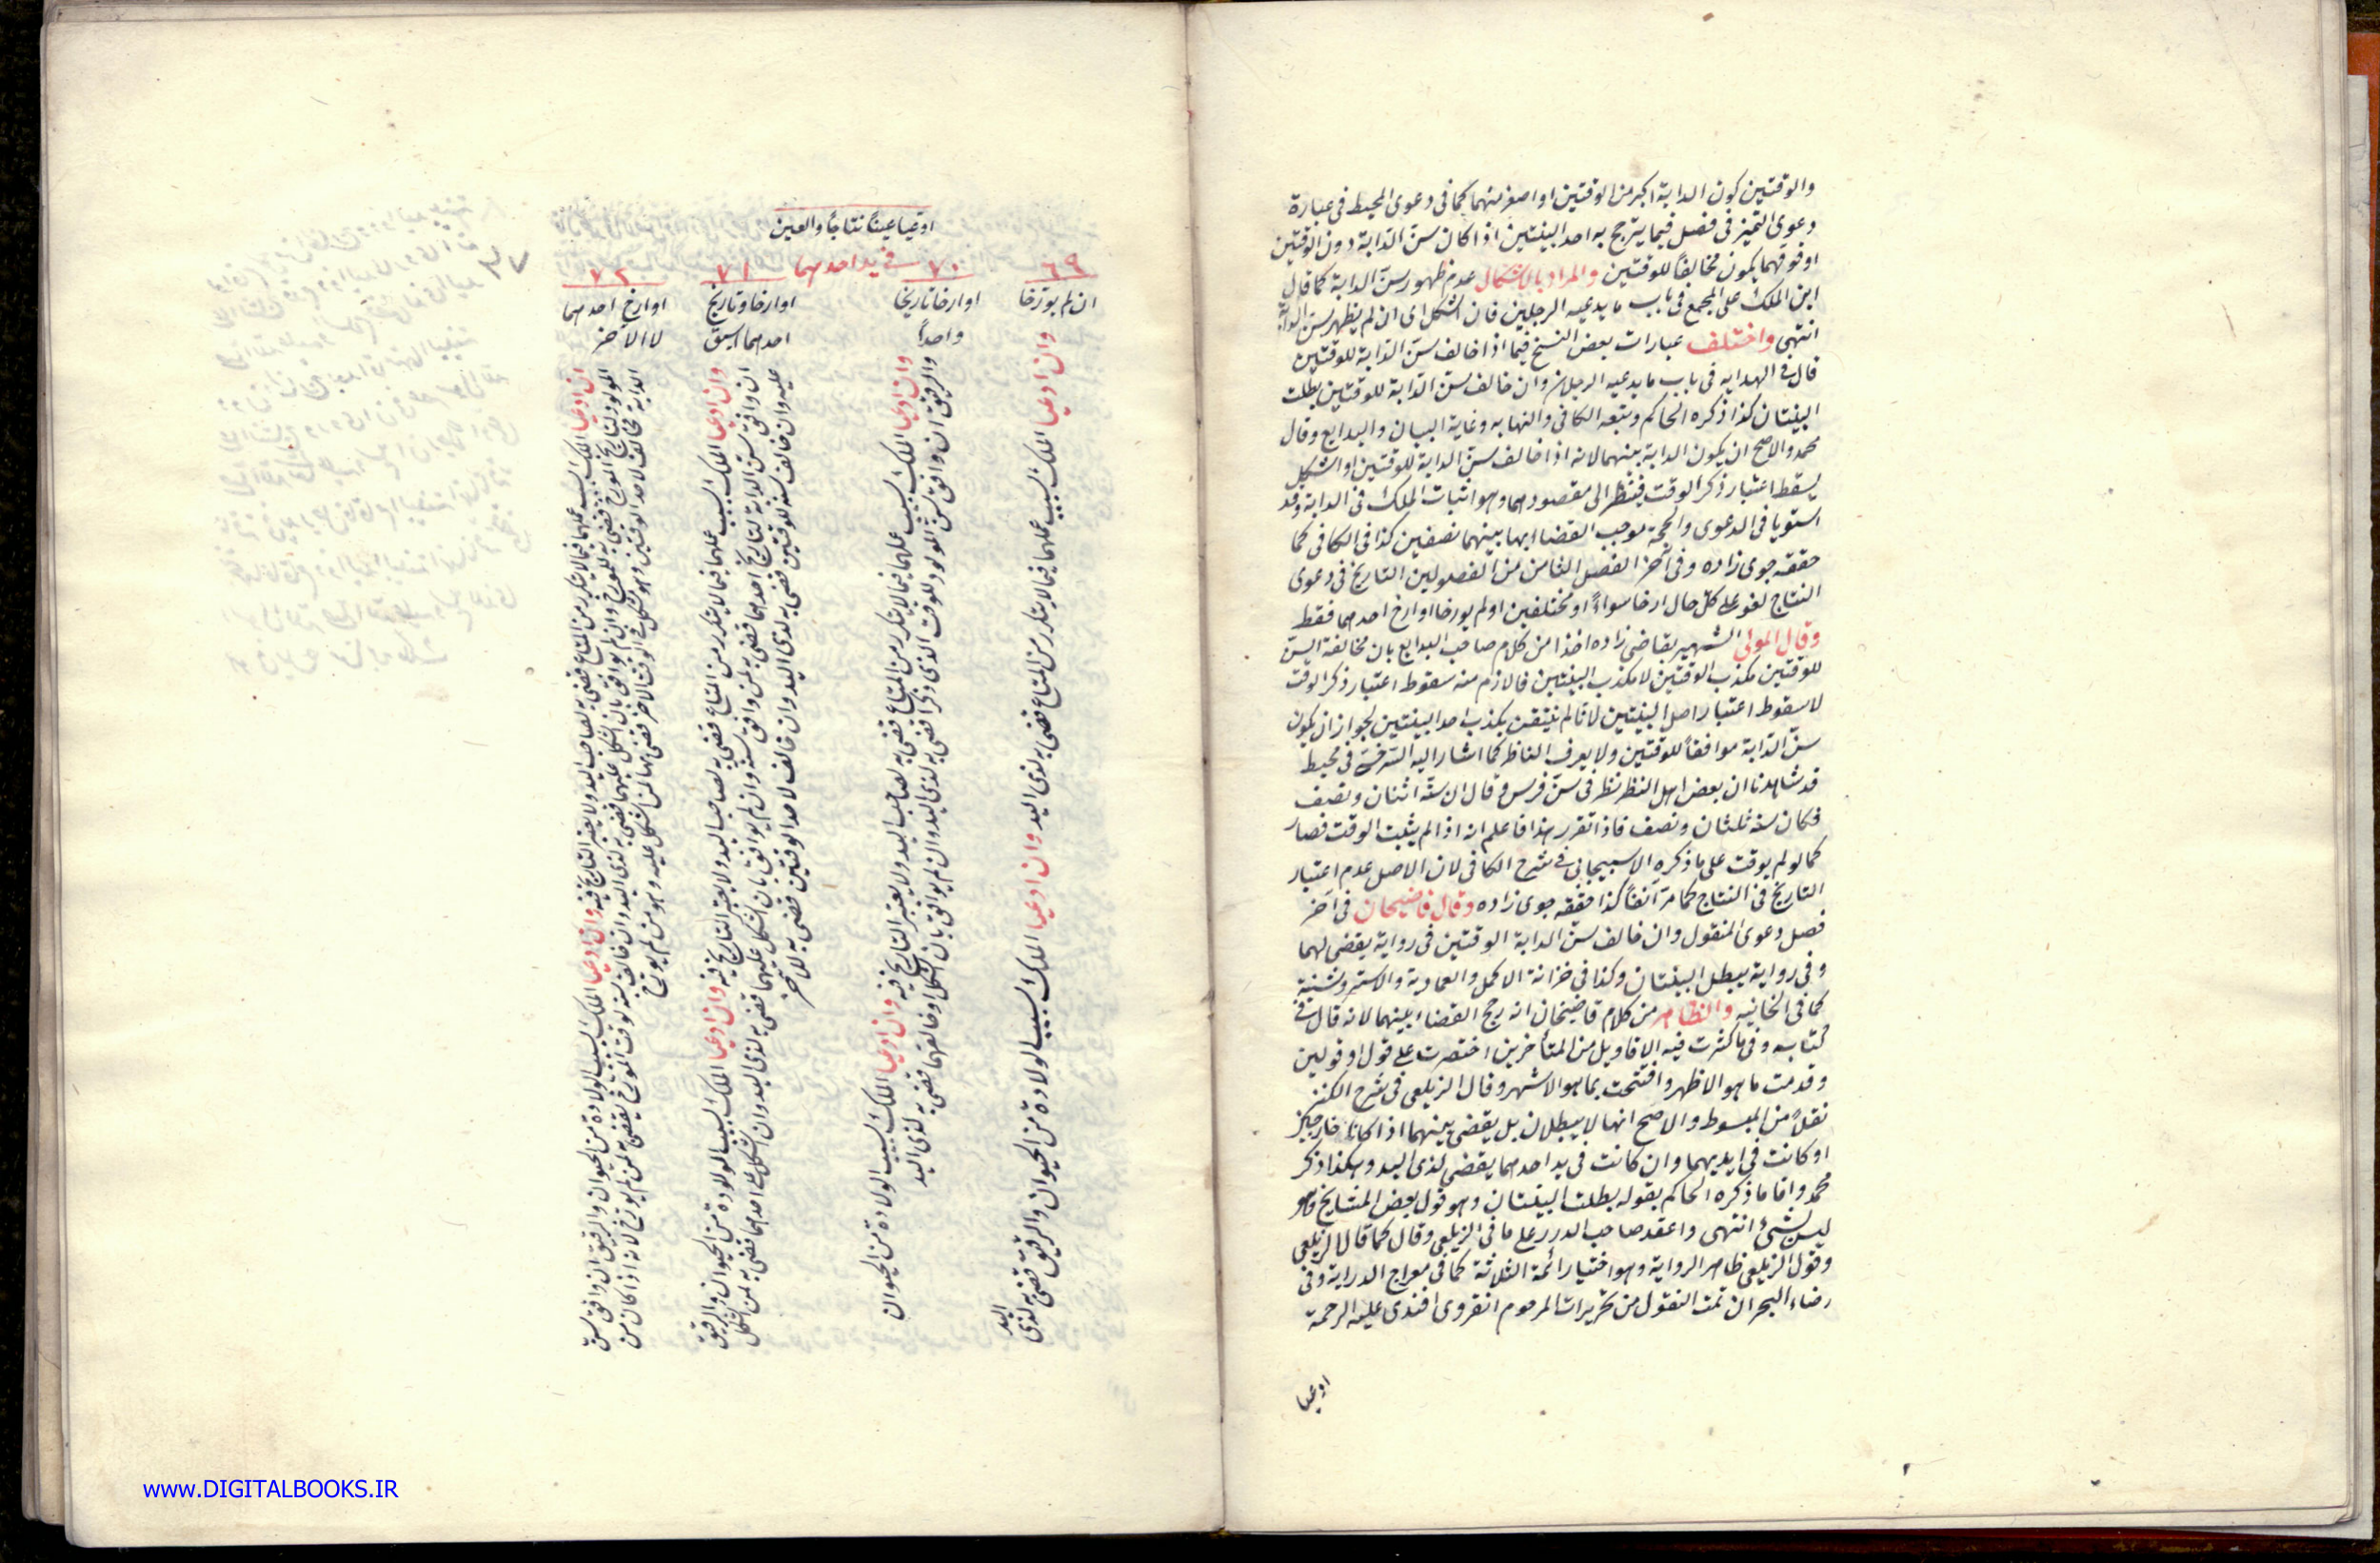 والوقتين كون الدابة اكبر من الوقتين او اصغر منهما كما فى دعوى المحيط فى عبارة
دعوى التميز فى فصل فيما يترجح به احد البينتين اذا كان سن الدابة دون الوقتين
او فوقهما يكون مخالفا للوقتين والمراد بالاشكال عدم ظهور سن الدابة كما قال
ابن الملك على المجمع فى باب ما يدعيه الرجلين فان اشكل اى ان لم يظهر سن الدابة
انتهى واختلف عبارات بعض النسخ فيما اذا خالف سن الدابة للوقتين
قال فى الهدايه فى باب ما يدعيه الرجلان وان خالف سن الدابة للوقتين بطلت
البينتان كذا ذكره الحاكم وتبعه الكافى والنهايه وغاية البيان والبدايع وقال
محمد والاصح ان يكون الدابة بينهما لانه اذا خالف سن الدابة للوقتين او اشكل
يسقط اعتبار ذكر الوقت فينظر الى مقصودهما وهو اثبات الملك فى الدابة وقد
استويا فى الدعوى والحجة فوجب القضا بها بينهما نصفين كذا فى الكافى كما
حققه جوى زاده وفى آخر الفصل الثامن من الفصولين التاريخ فى دعوى
النتاج لغو على كل حال ارخا سواء او مختلفين او لم يورخا او ارخ احدهما فقط
وقال المولى الشهير بقاضى زاده اخذا من كلام صاحب البدايع بان مخالفة السن
للوقتين مكذب الوقتين لا مكذب البينتين فاللازم منه سقوط اعتبار ذكر الوقت
لا سقوط اعتبار اصل البينتين لانا لم نتيقن بكذب احد البينتين لجواز ان يكون
سن الدابة موافقا للوقتين ولا يعرف الناظر كما اشار اليه السرخسى فى محيط
قد شاهدنا ان بعض اهل النظر نظر فى سن فرس وقال ان سنه اثنان ونصف
فكان سنه ثلثان ونصف فاذا تقرر هذا فاعلم انه اذا لم يثبت الوقت فصار
كما لو لم يوقت على ما ذكره الاسبيجابى فى شرح الكافى لان الاصل عدم اعتبار
التاريخ فى النتاج كما مر آنفا كذا حققه جوى زاده وقال قاضيخان فى آخر
فصل دعوى المنقول وان خالف سن الدابة الوقتين فى رواية يقضى لهما
وفى رواية يبطل البينتان وكذا فى خزانة الاكمل والعمادية والاستروشنية
كما فى الخانيه والظاهر من كلام قاضيخان انه رجح القضاء بينهما لانه قال فى
كتابه وفى ما كثرت فيه الاقاويل من المتأخرين اختصرت على قول او قولين
وقدمت ما هو الاظهر وافتتحت بما هو الاشهر وقال الزيلعى فى شرح الكنز
نقلا من المبسوط والاصح انها لا يبطلان بل يقضى بينهما اذا كانا خارجين
او كانت فى ايديهما وان كانت فى يد احدهما يقضى لذى اليد وهكذا ذكر
محمد واما ما ذكره الحاكم بقوله بطلت البينتان وهو قول بعض المشايخ فهو
ليس بشئ انتهى واعتقد صاحب الدرر على ما فى الزيلعى وقال كما قال الزيلعى
وقول الزيلعى ظاهر الرواية وهو اختيار ائمة الثلاثة كما فى معراج الدراية وفى
رضاء البحر ان تمت النقول من تحريرات المرحوم انقروى افندى عليه الرحمة
ادعيا
ادعيا عينا نتاجا والعين
فى يد احدهما
٦٩
ان لم يورخا
وان ادعيا الملك بسبب عملهما فيما لا يتكرر من المتاع قضى به لذى اليد وان ادعيا الملك بسبب الولادة من الحيوان والرقيق قضى به لذى
اليد
٧٠
او ارخا تاريخا
واحدا
وان ادعيا الملك بسبب عملهما فيما لا يتكرر من المتاع قضى به لصاحب اليد ولا يعتبر التاريخ فيه وان ادعيا الملك بسبب الولادة من الحيوان
والرقيق ان وافق سن المولود للوقت الذى ذكرا قضى به لذى اليد وان لم يوافق بان اشكل او خالفهما قضى به لذى اليد
٧١
او ارخا وتاريخ
احدهما اسبق
وان ادعيا الملك بسبب عملهما فيما لا يتكرر من المتاع قضى به لصاحب اليد ولا يعتبر التاريخ فيه وان ادعيا الملك بسبب الولادة من الحيوان والرقيق
ان وافق سن الدابة لتاريخ احدهما قضى به لمن وافق سنه وان لم يوافق بان اشكل عليهما قضى به لذى اليد وان اشكل على احدهما قضى به لمن اشكل
عليه وان خالف سنه للوقتين قضى به لذى اليد وان خالف لاحد الوقتين قضى به للآخر
٧٢
او ارخ احدهما
لا الآخر
ان ادعيا الملك بسبب عملهما فيما لا يتكرر من المتاع قضى به لصاحب اليد ولا يعتبر التاريخ فيه وان ادعيا الملك بسبب الولادة من الحيوان والرقيق ان وافق سن
المولود لتاريخ المورخ قضى به للمورخ وان لم يوافق بان اشكل عليهما قضى به لذى اليد وان خالف سنه لوقت المورخ يقضى به لمن لم يورخ لانه اذا كان سن
الدابة مخالف لاحد الوقتين وهو مشكل فى الوقت الاخر قضى بها لمن اشكل عليه وهو من لم يورخ
www.DIGITALBOOKS.IR